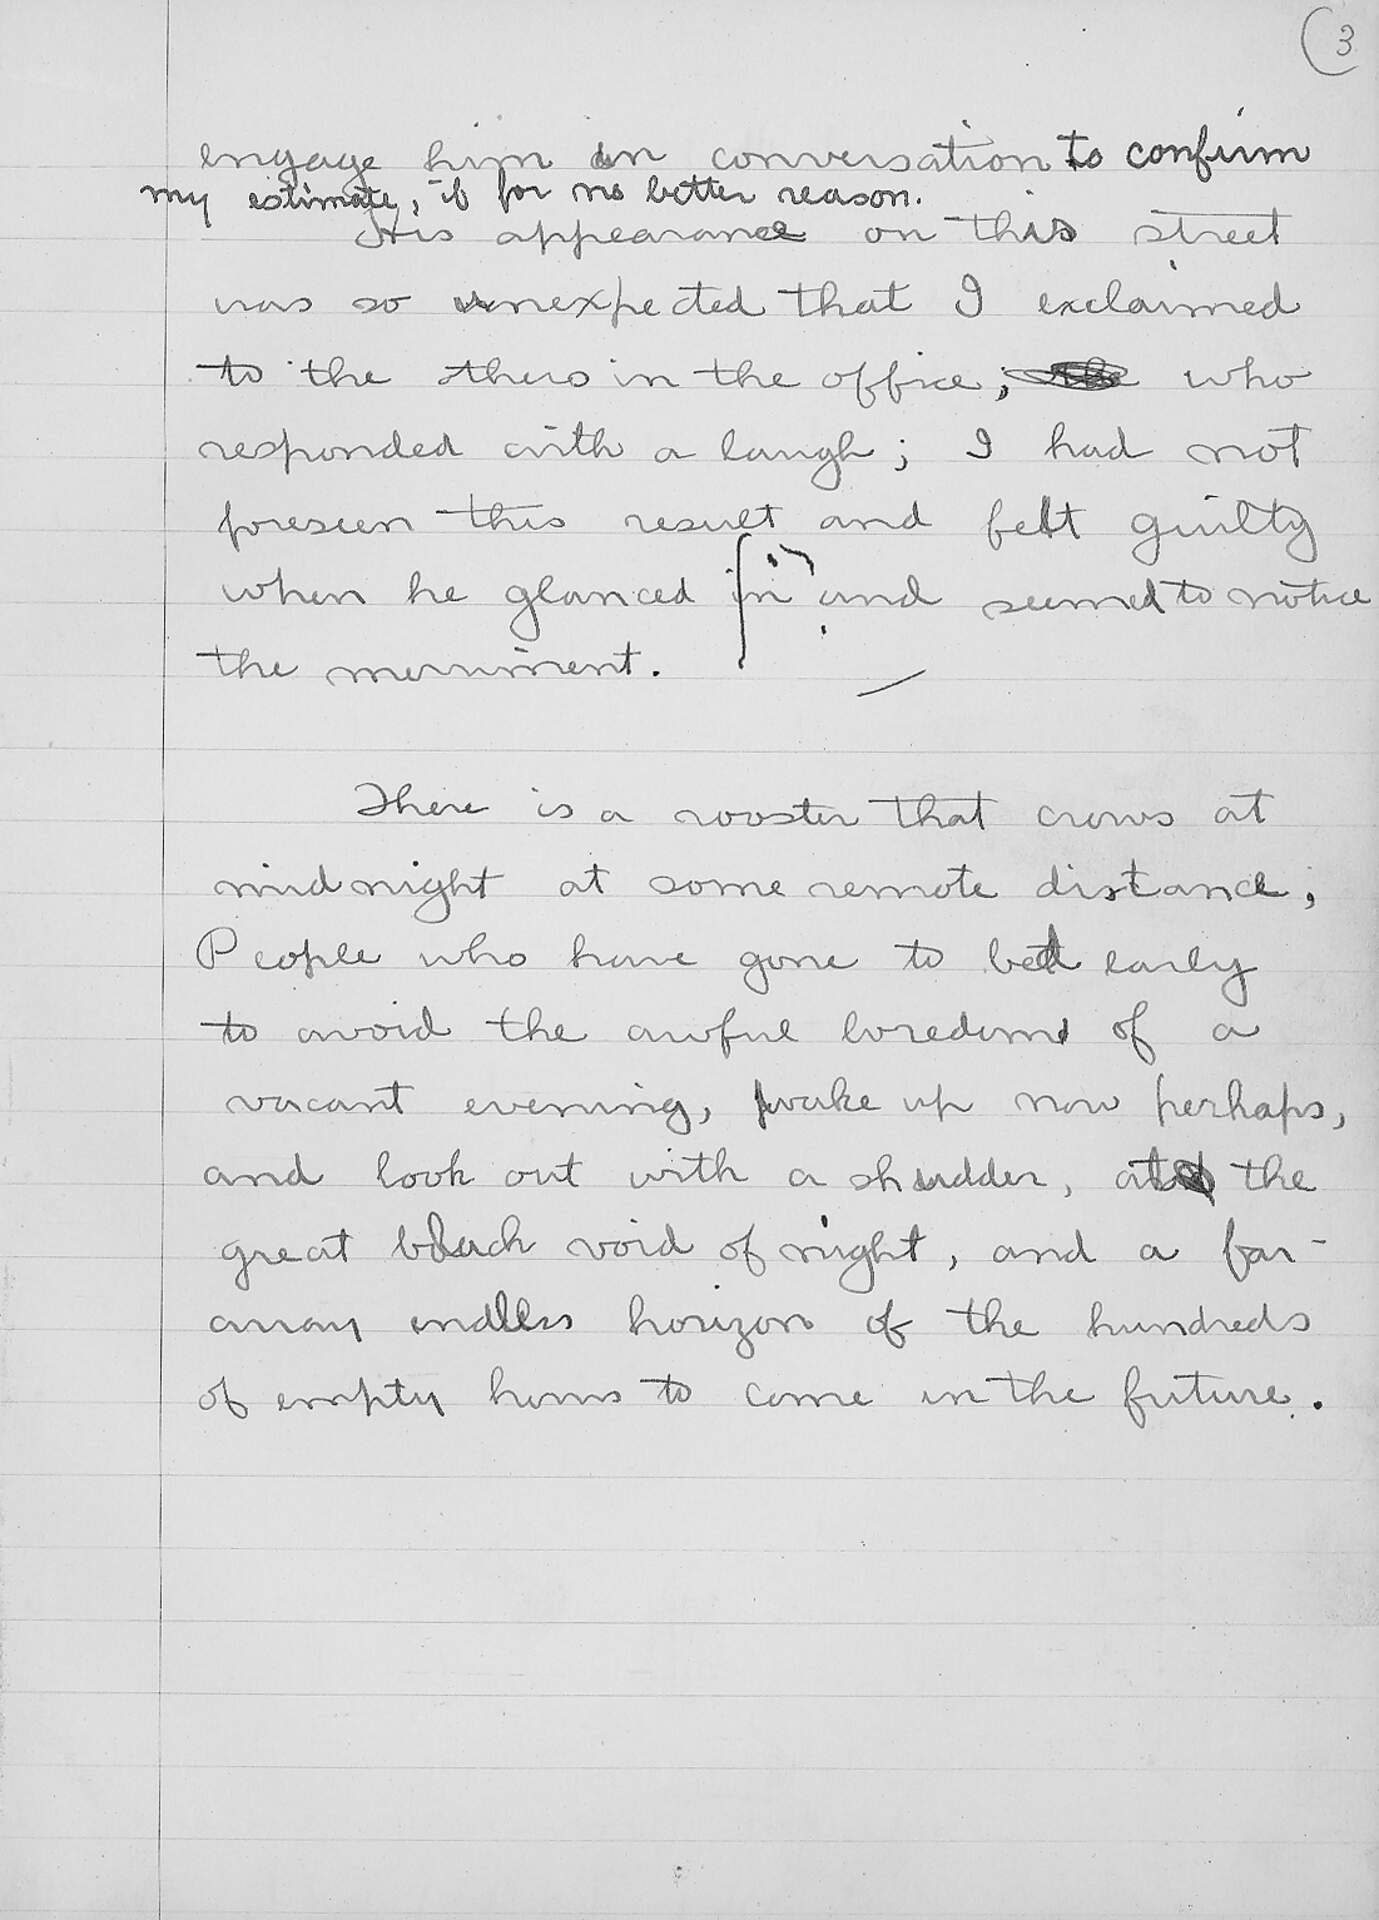 3
engage him in conversation to confirm
my estimate, if for no better reason.
His appearance on this street
was so unexpected that I exclaimed
to the others in the office, who
responded with a laugh; I had not
foreseen this result and felt guilty
when he glanced in and seemed to notice
the merriment.
There is a rooster that crows at
midnight at some remote distance;
People who have gone to bed early
to avoid the awful boredom of a
vacant evening, wake up now perhaps,
and look out with a shudder, at the
great black void of night, and a far-
away endless horizon of the hundreds
of empty hours to come in the future.